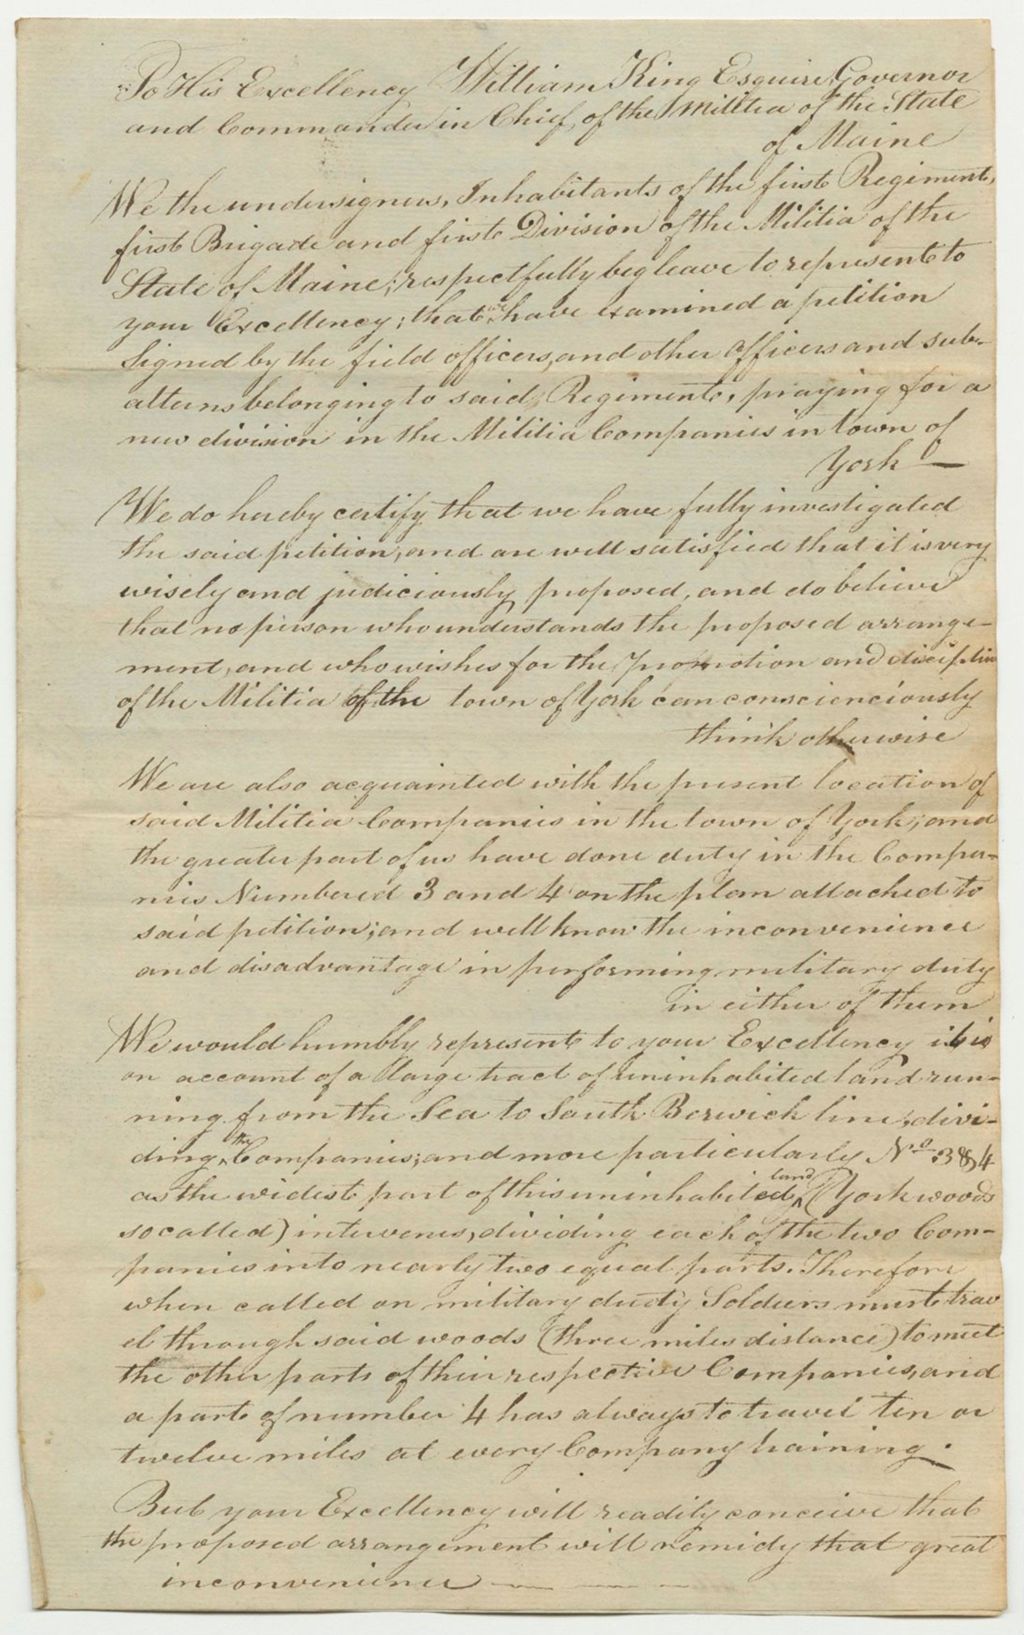 To His Excellency William King Esquire, Governor
and Commander in Chief, of the Militia of the State
of Maine
We the undersigners, Inhabitants of the first Regiment,
first Brigade and first Division of the Militia of the
State of Maine; respectfully beg leave to represent to
your Excellency; that we have examined a petition
Signed by the field officers, and other officers and sub-
alterns belonging to said Regiment, praying for a
new division in the Militia Companies in town of
York —
We do hereby certify that we have fully investigated
the said petition, and are well satisfied that it is very
wisely and judiciously proposed, and do believe
that no person who understands the proposed arrange-
ment, and who wishes for the promotion and disciplin
of the Militia of the town of York can conscienciously
think otherwise
We are also acquainted with the present location of
said Militia Companies in the town of York; and
the greater part of us have done duty in the Compa-
nies Numbered 3 and 4 on the plan attached to
said petition; and well know the inconvenience
and disadvantage in performing military duty
in either of them
We would humbly represent to your Excellency it is
on account of a large tract of uninhabited land run-
ning from the Sea to South Berwick line, divi-
ding the Companies; and more particularly No 3 & 4
as the widest part of this uninhabited land (York woods
so called) intervenes, dividing each of the two Com-
panies into nearly two equal parts. Therefore
when called on military duty Soldiers must trav
el through said woods (three miles distance) to meet
the other parts of their respective Companies, and
a part of number 4 has always to travel ten or
twelve miles at every Company training.
But your Excellency will readily conceive that
the proposed arrangement will remidy that great
inconvenience — — —